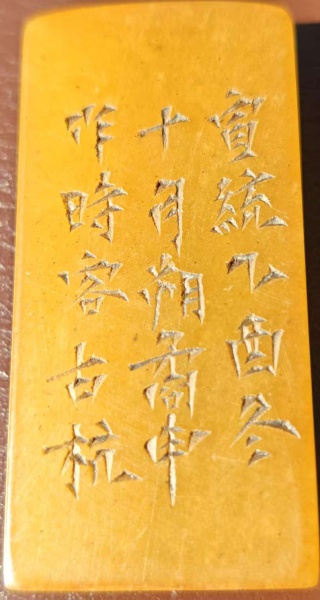 宣統乙酉冬
十月朔矞申
作時客古杭